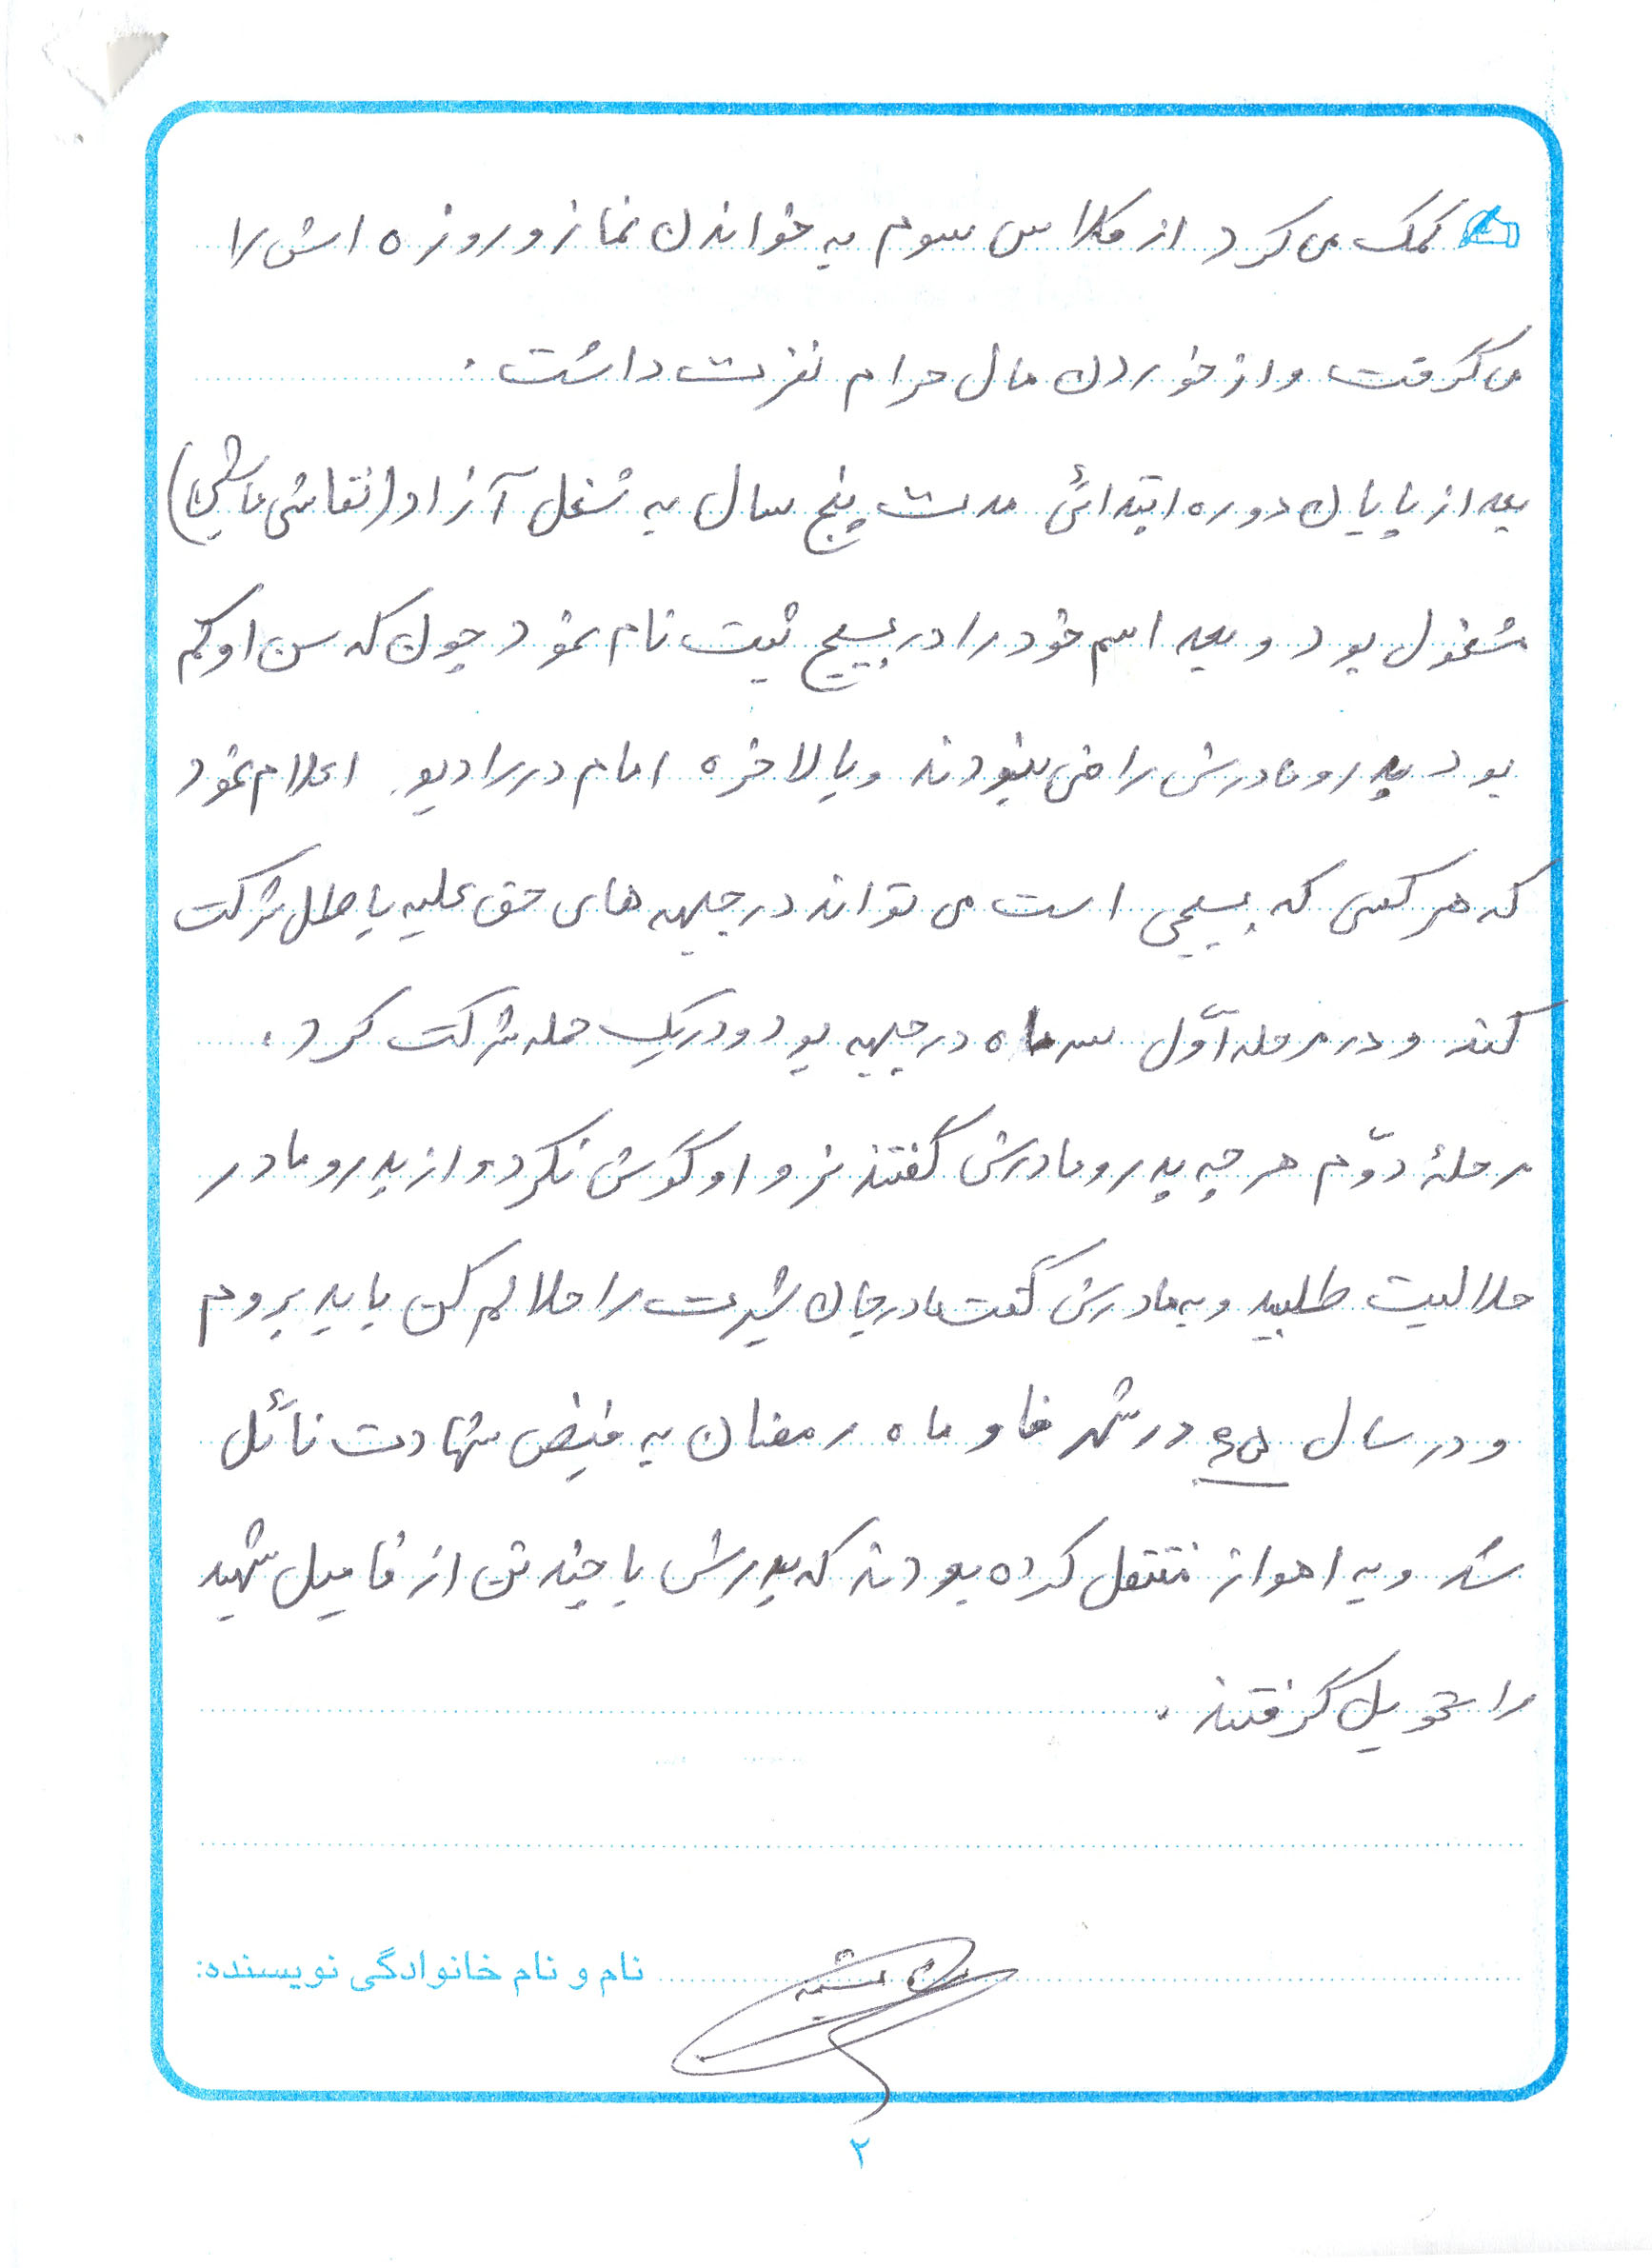 کمک می کرد از کلاس سوم به خواندن نماز و روزه اش را
می گرفت و از خوردن مال حرام نفرت داشت .
بعد از پایان دوره ابتدائی مدت پنج سال به شغل آزاد (نقاشی ماشین)
مشغول بود و بعد اسم خود را در بسیج ثبت نام نمود چون که سن او کم
بود پدر و مادرش راضی نبودند و بالاخره امام در رادیو اعلام نمود
که هر کسی که بسیجی است می تواند در جبهه های حق علیه باطل شرکت
کند و در مرحله اوّل سه ماه در جبهه بود و در یک حمله شرکت کرد .
مرحلهٔ دوّم هر چه پدر و مادرش گفتند نرو او گوش نکرد و از پدر و مادر
حلالیت طلبید و به مادرش گفت مادر جان شیرت را حلالم کن باید بروم
و در سال ۶۵ در شهر فاو ماه رمضان به فیض شهادت نائل
شد و به اهواز منتقل کرده بودند که پدرش با چند تن از فامیل شهید
را تحویل گرفتند .
نام و نام خانوادگی نویسنده:
۲